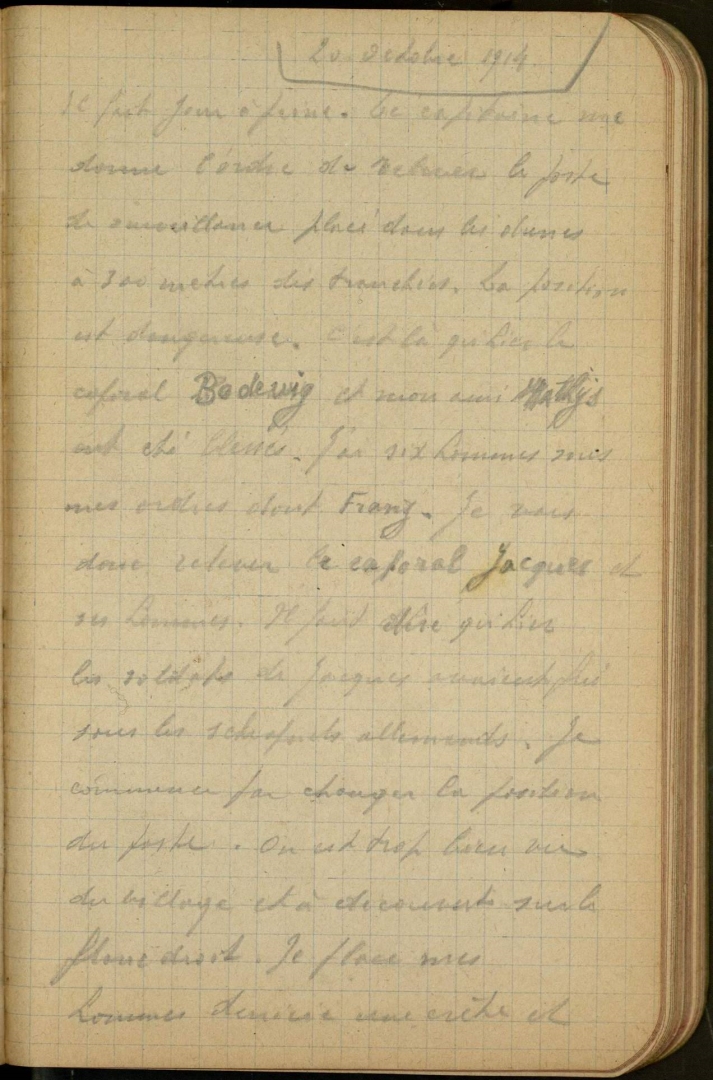 20 octobre 1914
Il fait jour à peine. Le capitaine me
donne l'ordre de relever le poste
de surveillance placé dans les dunes
à 300 metres des tranchées. La position
est dangereuse. C'est là qu'hier le
caporal Bodewig et mon ami Mathijs
ont été blessés. J'ai six hommes sous
mes ordres dont Franz. Je vais
donc relever le caporal Jacques et
ses hommes. Il faut dire qu'hier
les soldats de Jacques avaient plié
sous les schrapnels allemands. Je
commence par changer la position
du poste. On est trop bien vu
du village et à decouvert sur le
flanc droit. Je place mes
hommes derrière une crête et